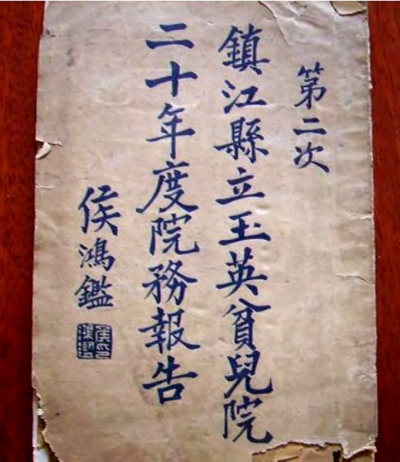 第二次
鎮江縣立玉英貧兒院
二十年度院務報告
侯鴻鑑